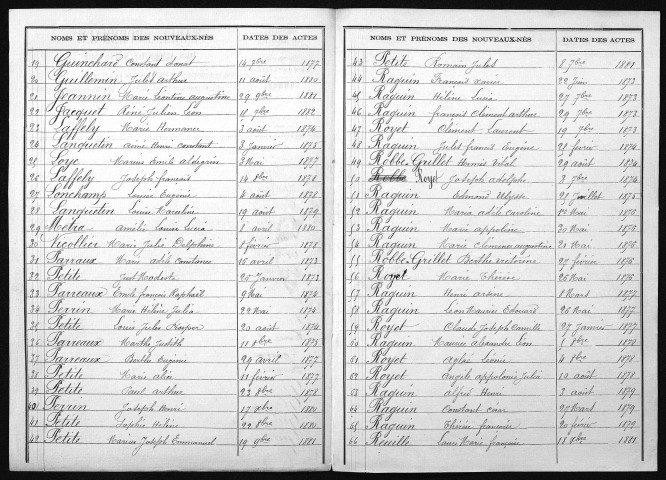 NOMS ET PRÉNOMS DES NOUVEAUX-NÉS DATES DES ACTES
19 Guinchard Constant donat 14 7bre 1877
20 Guillemin Jules Arthur 11 août 1880
21 Jeannin Marie Léontine augustine 29 9bre 1881
22 Jacquet Réné Julien Léon 11 1882
23 Laffely Marie Hermance 3 août 1874
24 Languetin aimé Henri constant 3 Janvier 1875
25 Loye Marius Emile 3 Mai 1877
26 Laffely Joseph françois 14 8bre 1878
27 Lonchamp Louise Eugénie 4 août 1878
28 Languetin Louis 19 août 1879
29 Métra Amélie Louise Lucia 8 avril 1880
30 Nicollier Marie Julie Delphine 8 février 1878
31 Marie adèle Constance 16 avril 1873
32 Petite Just Modeste 25 Janvier 1873
33 Parreaux Emile françois Raphaël 9 Mai 1874
34 Perrin Marie Hélène Julia 22 Mai 1874
35 Petite Louis Jules Prosper 20 août 1874
36 Parreaux Marthe Judith 11 8bre 1875
37 Parreaux Berthe Eugénie 29 Avril 1877
38 Petite Marie alix 11 février 1877
39 Petite Paul arthur 22 8bre 1878
40 Perrin Joseph Henri 17 xbre 1880
41 Petite Sophie Hélène 22 8bre 1880
42 Petite Marius Joseph Emmanuel 19 9bre 1881
NOMS ET PRÉNOMS DES NOUVEAUX-NÉS DATES DES ACTES
43 Petite Romain Jules 8 7bre 1881
44 Raguin François xavier 22 Juin 1873
45 Raguin Hélène Lucia 27 7bre 1873
46 Raguin françois Clément arthur 29 7bre 1873
47 Royet Clément Laurent 19 7bre 1873
48 Raguin Jules francis Eugène 28 février 1874
49 Robbe-Grillet Hermis Vital 29 août 1874
50 Robbe Royet Joseph adolphe 3 7bre 1874
51 Raguin Edmond Ulysse 21 Juillet 1875
52 Raguin Maria adèle caroline 1876
53 Raguin Marie appoline 20 Mai 1876
54 Raguin Marie Clémence augustine 21 Mai 1876
55 Robbe-Grillet Berthe victorine 27 février 1876
56 Royet Marie Thérèse 26 Mai 1876
57 Raguin Henri arsène 8 Mars 1877
58 Raguin Léon Maurice Edouard 26 Mai 1877
59 Royet Claude Joseph Camille 27 Janvier 1877
60 Raguin Maurice alexandre Léon 1 8bre 1878
61 Royet Aglaé Léonie 4 8bre 1878
62 Royet Angèle appolonie Julia 10 août 1878
63 Raguin alfred Henri 3 août 1879
64 Raguin Constant 27 Mars 1879
65 Raguin Thérèse françoise 20 février 1879
66 Reuille Louis Marie 18 1881